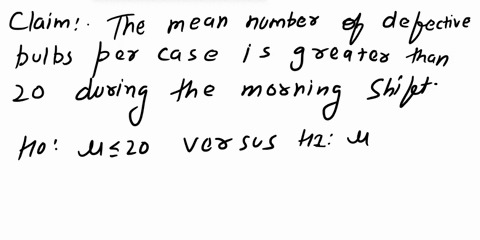 Claim:. The mean number of defective
bulbs per case is greater than
20 during the morning shift.
H0: μ≤20 versus H1: μ